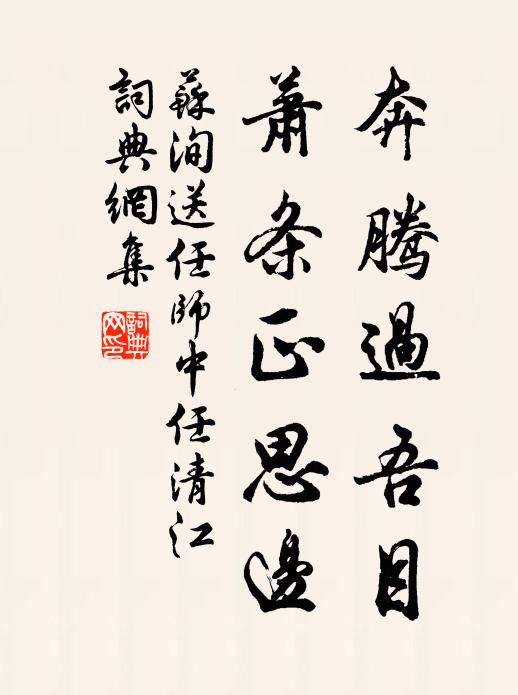 奔騰過吾目
蕭条正思邊
蘇洵送任師中任清江
詞典網集
詞典
网印